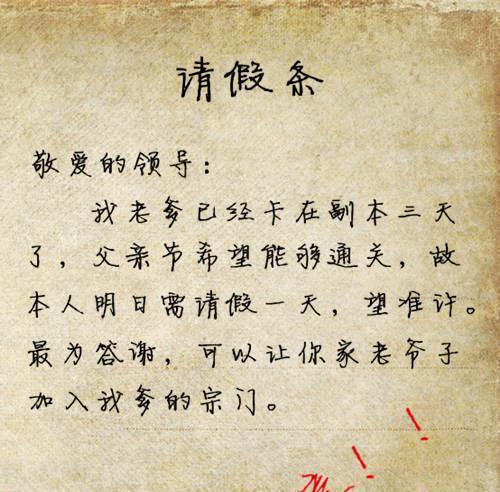 请假条
敬爱的领导：
我老爹已经卡在副本三天
了，父亲节希望能够通关，故
本人明日需请假一天，望准许。
最为答谢，可以让你家老爷子
加入我爹的宗门。
！！